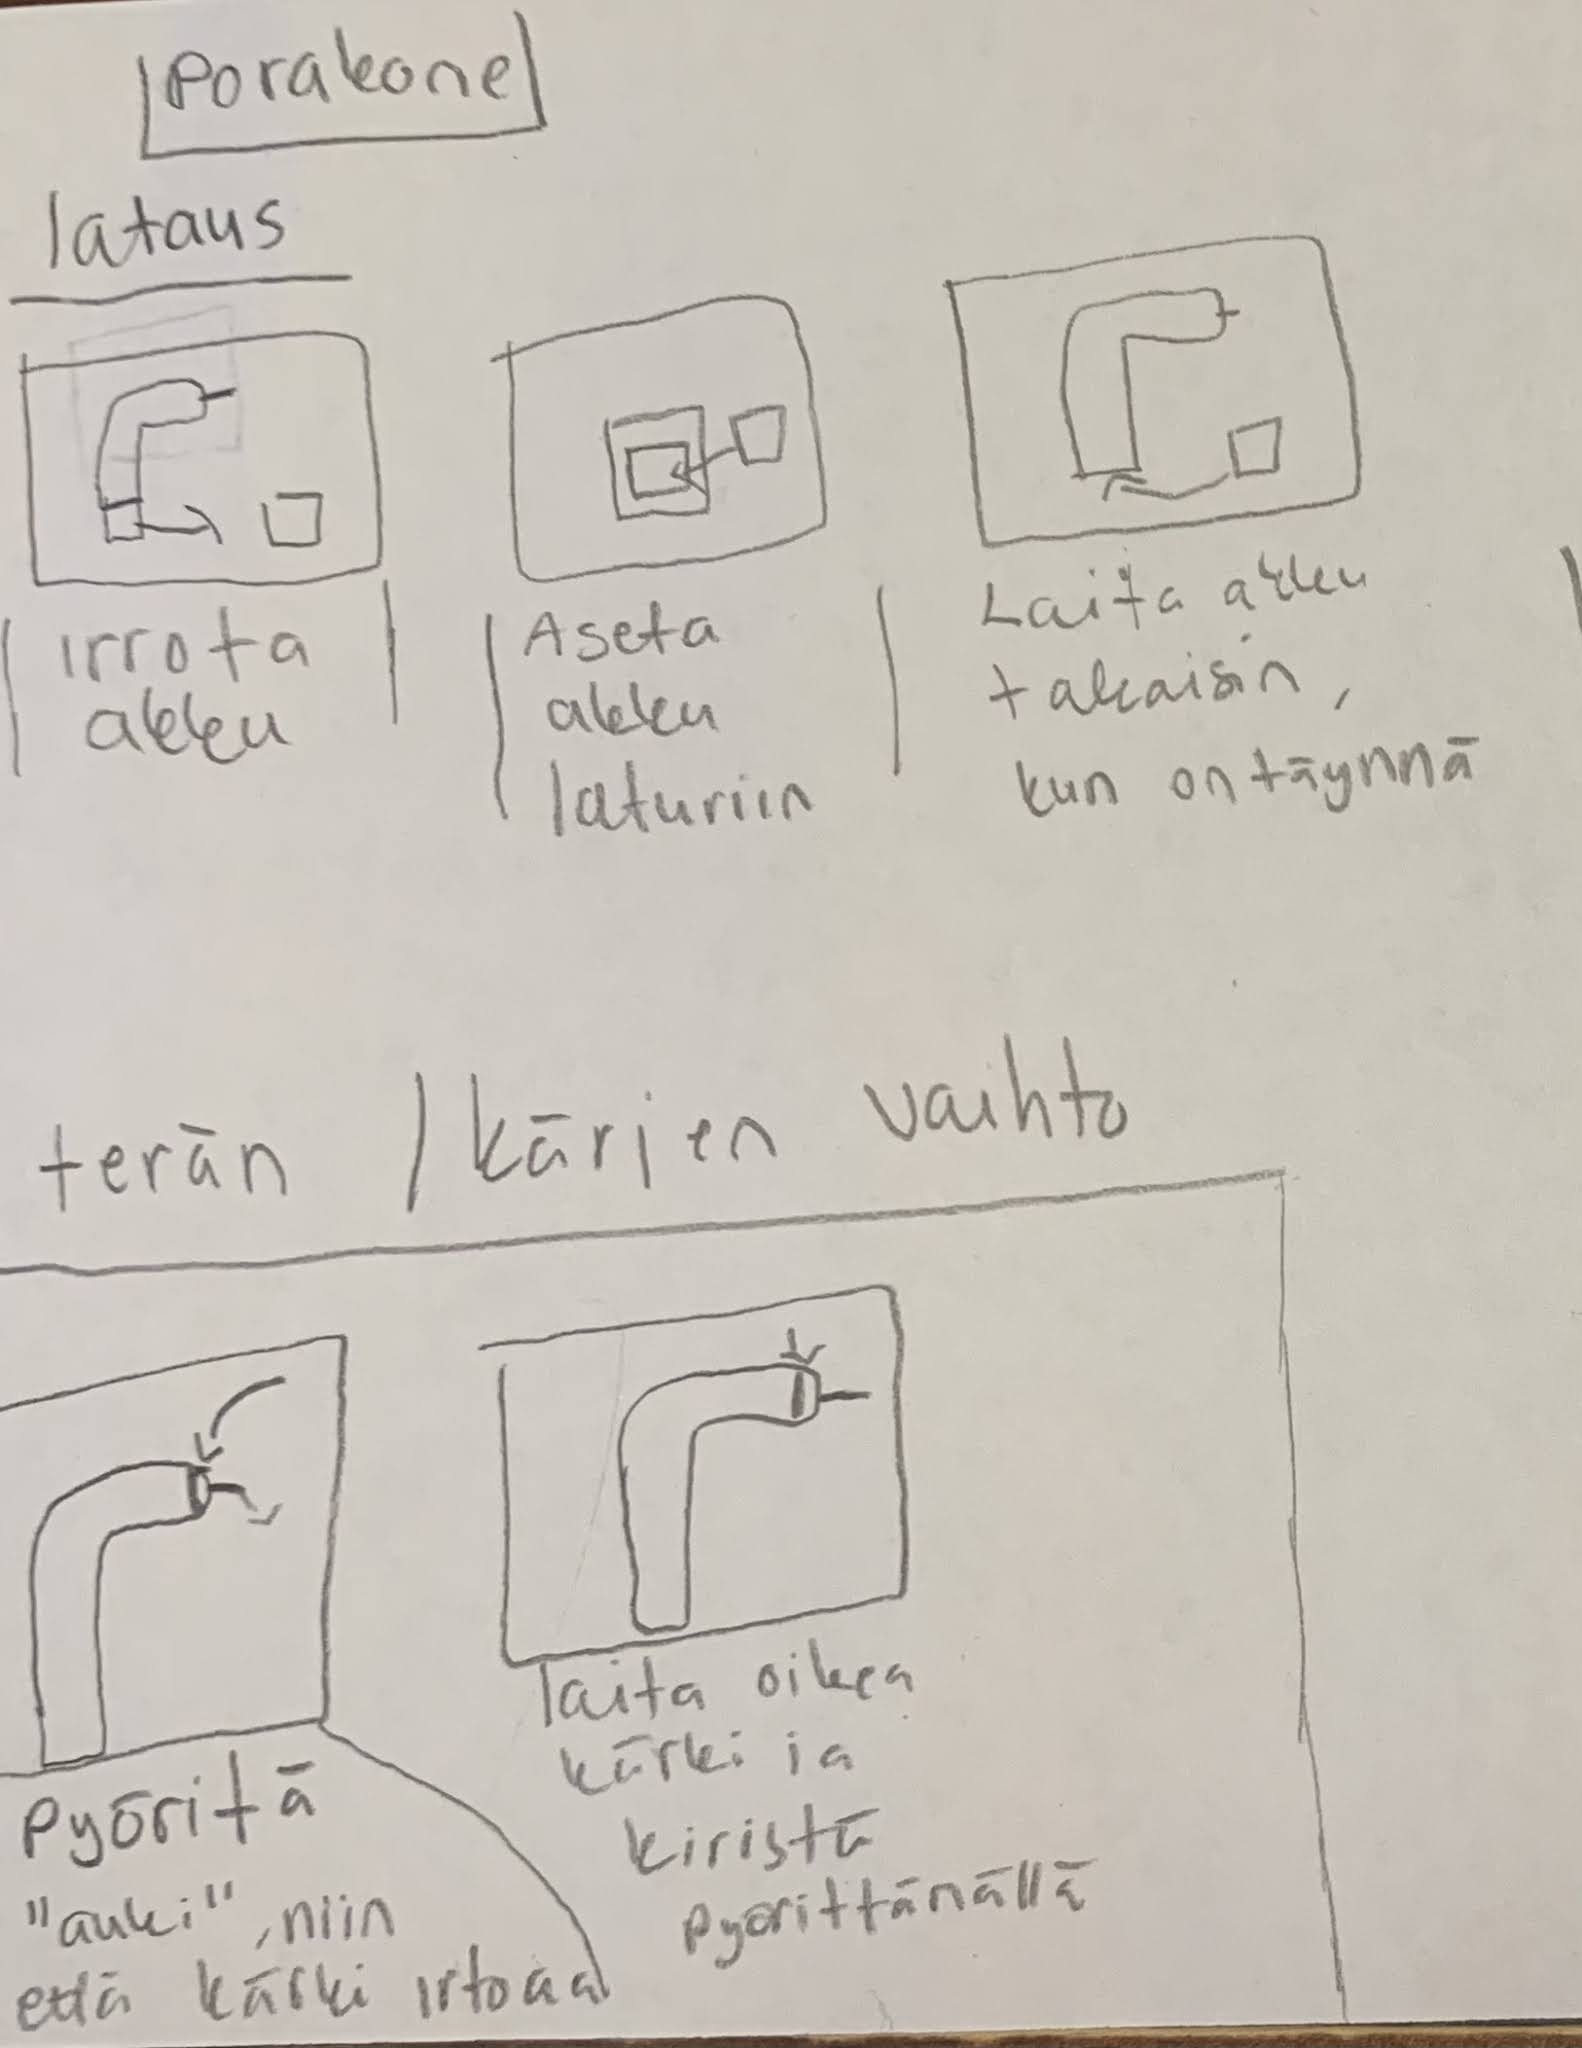 Porakone
lataus
irrota
akku
Aseta
akku
laturiin
Laita akku
takaisin,
kun on täynnä
terän / kärjen vaihto
Pyöritä
"auki", niin
että kärki irtoaa
laita oikea
kärki ja
kiristä
pyörittämällä